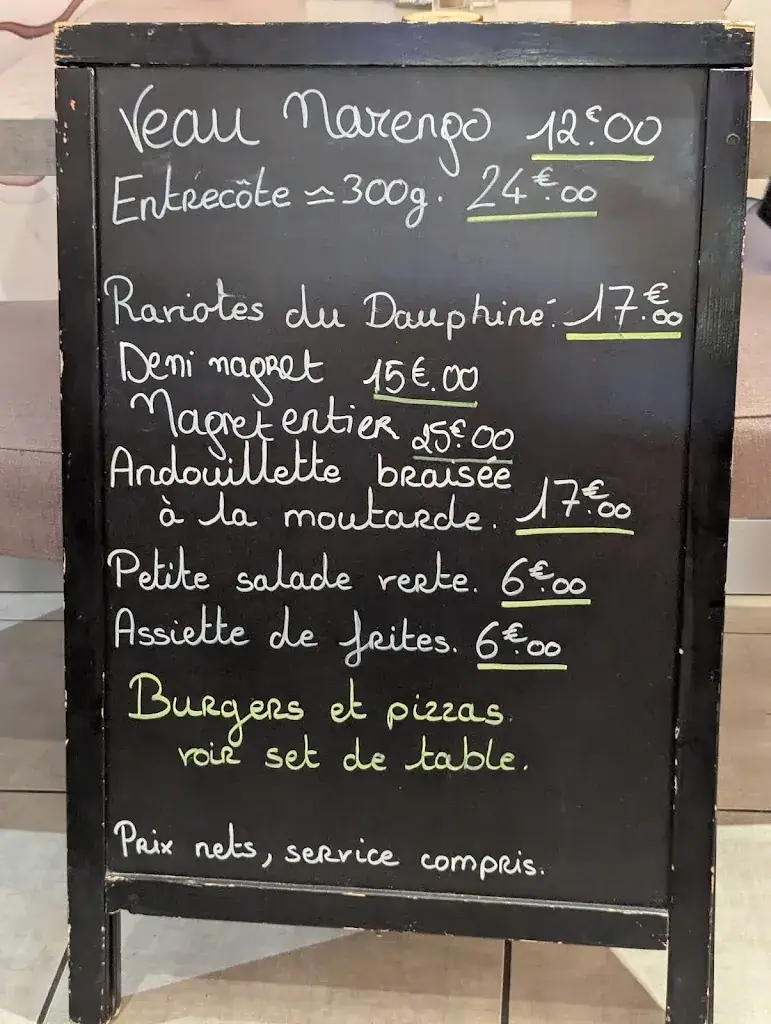 Veau Marengo 12€.00
Entrecôte ≃ 300g. 24€.00
Ravioles du Dauphiné. 17€.00
Demi magret 15€.00
Magret entier 25€.00
Andouillette braisée
à la moutarde. 17€.00
Petite salade verte. 6€.00
Assiette de frites. 6€.00
Burgers et pizzas
voir set de table.
Prix nets, service compris.